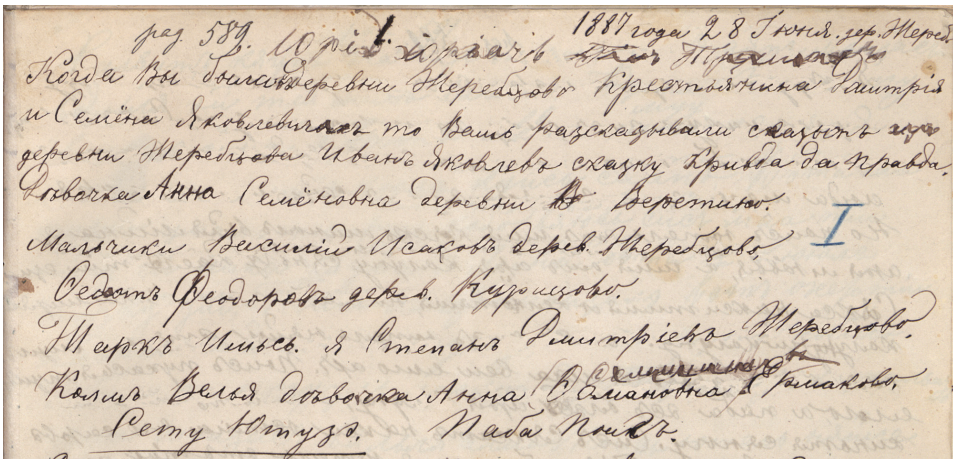 рад 589. 1. Юрié юриачъ 1887 года 28 Іюня. дер. Жереб.
Когда Вы были деревни Жеребцово Крестьянина Дмитрія
и Семёна Яковлевичахъ то Вамъ разсказывали сказыкъ изъ
деревни Жеребцова Иванъ Яковлевъ сказку Кривда да Правда.
Дѣвочка Анна Семёновна деревни Веретино.
Мальчики Василій Исаковъ дерев. Жеребцово,
Ѳедотъ Ѳеодоровъ дерев. Курицово.
Таркъ Имьсь. я Степанъ Дмитріевъ Жеребцово,
Колмъ Велья дѣвочка Анна Ермаково.
Сету Ютузъ. Паба Поигъ.
I